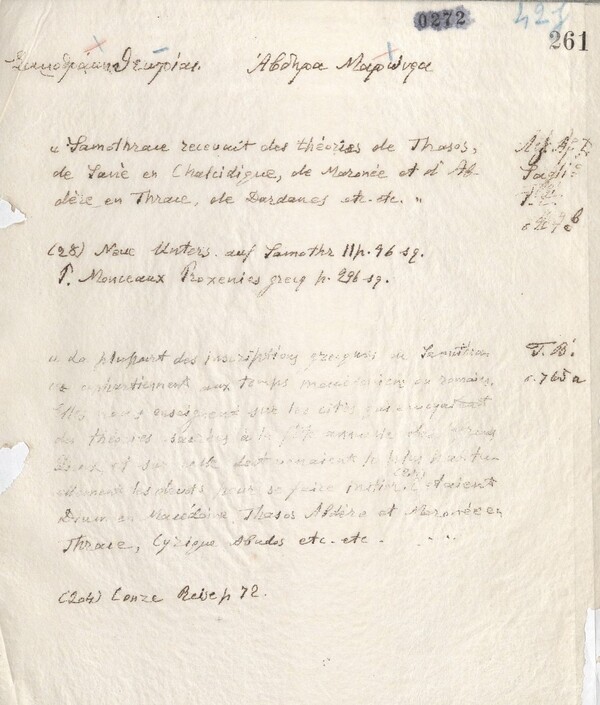 0272
421
261
Σαμοθράκη Θεωρίαι. Ἄβδηρα Μαρώνεια
« Samothrace recevait des théories de Thasos,
de Sané en Chalcidique, de Maronée et d'Ab
dère en Thrace, de Dardanos etc. etc. »
Saglio
(28) Neue Unters. auf Samothr II p. 96 sq.
P. Monceaux Proxénies grecq p. 296 sq.
« La plupart des inscriptions grecques de Samothrace
appartiennent aux temps macédoniens ou romains.
Elles nous enseignent sur les cités qui envoyaient
des théories sacrées à la fête annuelle des
Dieux et sur
pour se faire initier. C'étaient
Drum en Macédoine, Thasos Abdère et Maronée en
Thrace, Cyzique Abydos etc. etc.
Τ. Β'.
σ. 765 a
(204) Conze Reise p 72.